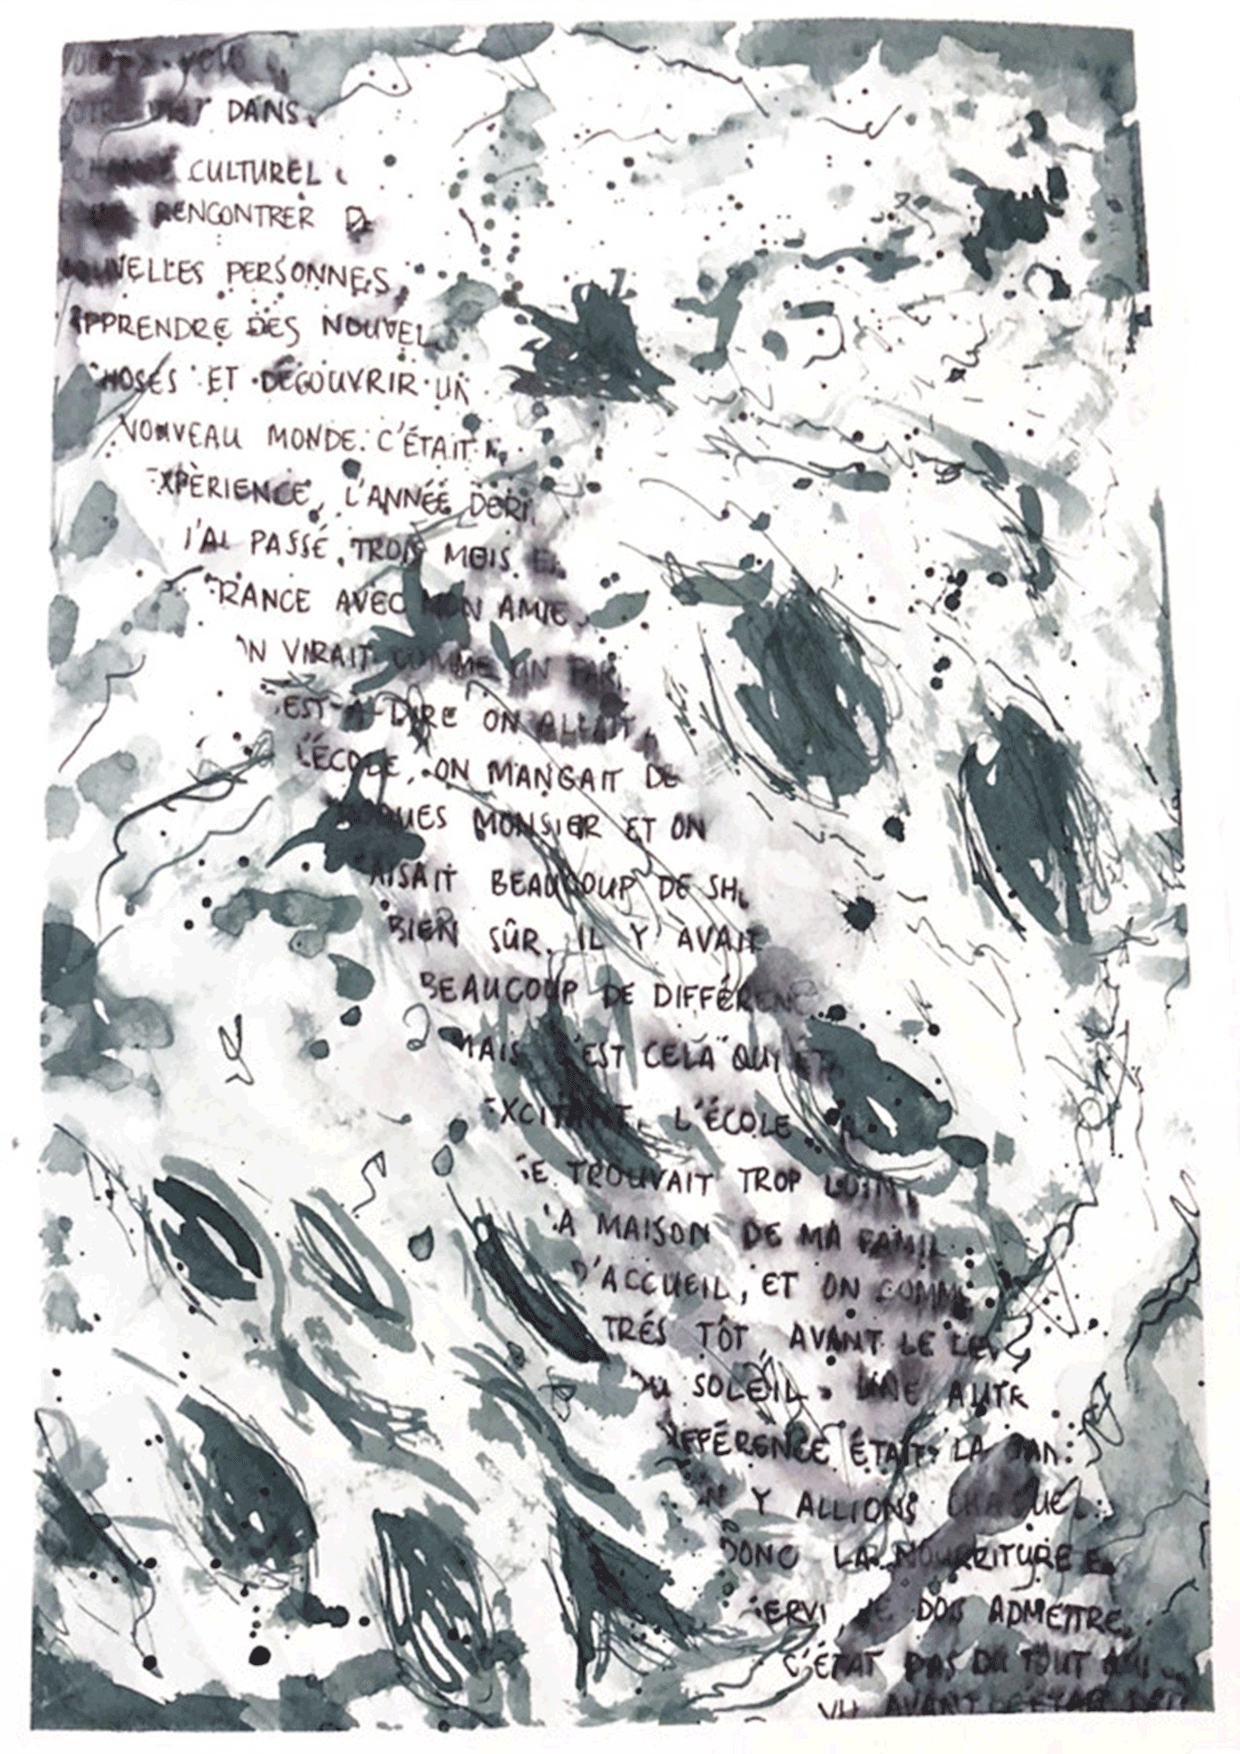 DANS
CULTUREL
RENCONTRER
PERSONNES,
PPRENDRE DES NOUVEL
HOSES ET DÉCOUVRIR UN
NOUVEAU MONDE. C'ÉTAIT
XPÈRIENCE, L'ANNÉE DERI
J'AI PASSÉ TROIS MOIS E
RANCE AVEC MON AMIE.
ON VIRAIT COMME UN PARI
EST-A-DIRE ON ALLAIT
L'ÉCOLE, ON MANGAIT DE
QUES MONSIER ET ON
AISAIT BEAUCOUP DE SH
BIEN SÛR. IL Y AVAIT
BEAUCOUP DE DIFFÉRENC
MAIS C'EST CELÀ QUI ET
EXCITANT. L'ÉCOLE
SE TROUVAIT TROP LOIN
LA MAISON DE MA FAMIL
D'ACCUEIL, ET ON COMME
TRÉS TÔT, AVANT LE LEV
DU SOLEIL. UNE AUTR
IFFÉRENCE ÉTAIT LA
Y ALLIONS CHAQUE
DONC LA NOURRITURE E
ERVI, JE DOIS ADMETTRE,
C'ETAT PAS DU TOUT QUI
AVANT